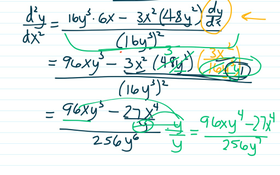 d²y/dx² = (16y³·6x − 3x²(48y²) dy/dx) / (16y³)² ←
= (96xy³ − 3x²(48y²)(3x²/16y³)) / (16y³)²
= (96xy³ − 27x⁴/y) / 256y⁶ · y/y = (96xy⁴ − 27x⁴) / 256y⁷